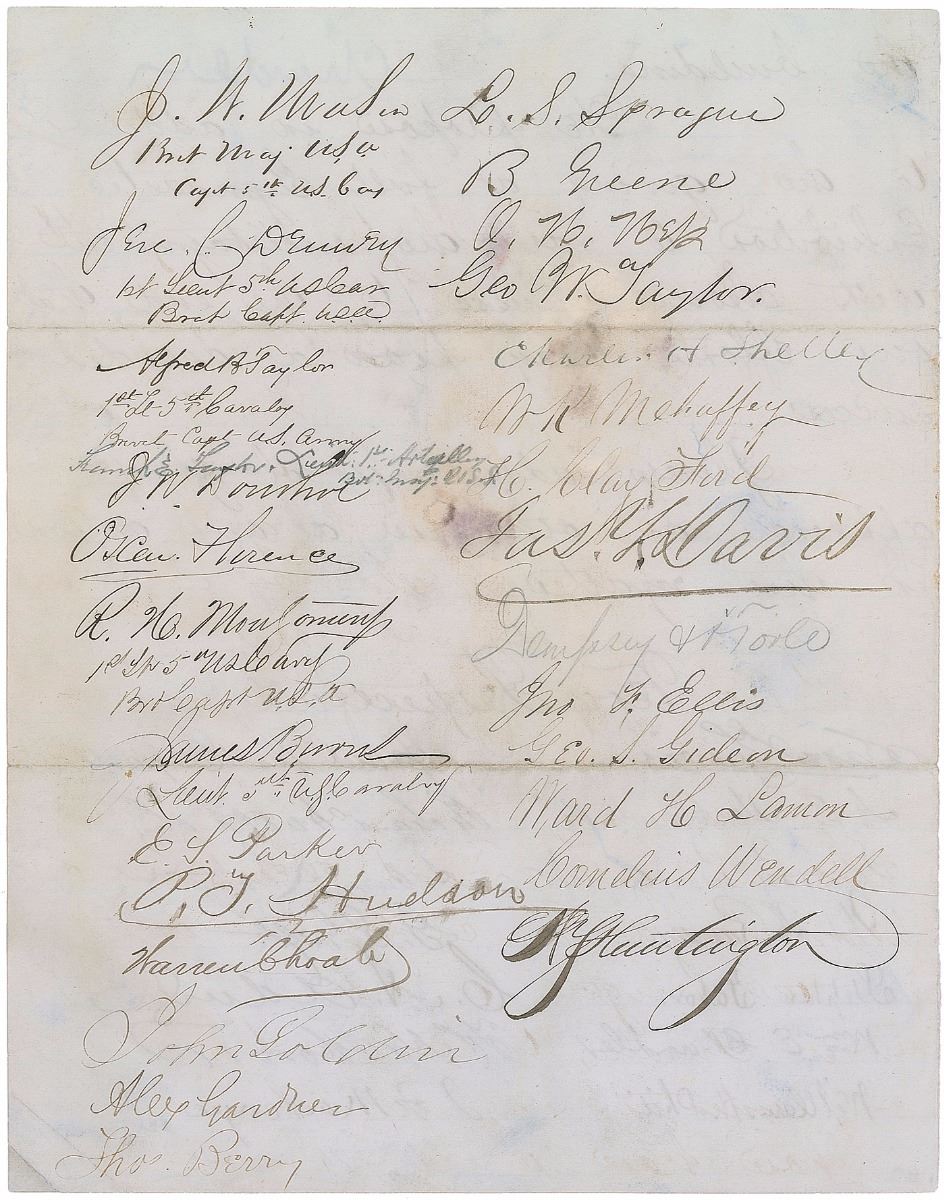 J. W. Mason
Bvt Maj USA
Capt 5th US Cav
Jere. C. Denney
1st Lieut 5th US Cav
Bvet Capt. U.S.A.
Alfred B Taylor
1st Lt 5th Cavalry
Brevet Capt US. Army
Taylor, Lieut: 1st Artillery
Bvt: Maj: U.S.A.
J W
Oscar. Florence
R. H. Montgomery
1st Lt 5th US Cavy
Bvt Capt U.S.A
James Burns
Lieut. 5th U.S. Cavalry
E. S. Parker
P. T. Hudson
Warren Choate
John Goldin
Alex Gardner
Thos. Berry
L. S. Sprague
B Greene
O. H.
Geo W. Taylor.
Charles H Shelley
W K Mehaffey
H. Clay Ford
Jas. Y. Davis
Dempsey & O'Toole
Jno F. Ellis
Geo. S. Gideon
Ward H Lamon
Cornelius Wendell
Huntington